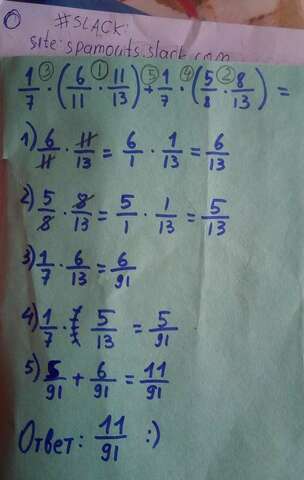 #SLACK:
site:spamouts.slack.com
1/7 ③ · (6/11 ① · 11/13) ⑤ + 1/7 ④ · (5/8 ② · 8/13) =
1) 6/11 · 11/13 = 6/1 · 1/13 = 6/13
2) 5/8 · 8/13 = 5/1 · 1/13 = 5/13
3) 1/7 · 6/13 = 6/91
4) 1/7 · 5/13 = 5/91
5) 5/91 + 6/91 = 11/91
Ответ: 11/91 :)